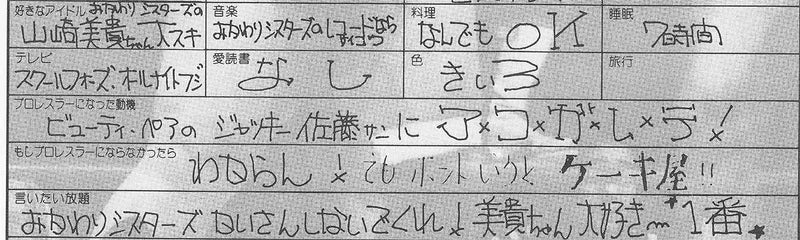 好きなアイドル おかわりシスターズの
山崎美貴ちゃん大スキ
音楽
おかわりシスターズのレコードなら
すイゴウ
料理
なんでもOK
睡眠
7時間
テレビ
スクールフォーズ、オールナイトフジ
愛読書
なし
色
きいろ
旅行
プロレスラーになった動機
ビューティ・ペアの ジャッキー佐藤サンに ア×コ×ガ×レ×テ!
もしプロレスラーにならなかったら
わからん! でもホントいうと ケーキ屋!!
言いたい放題
おかわりシスターズ かいさんしないでくれ! 美貴ちゃん大好き〜1番★